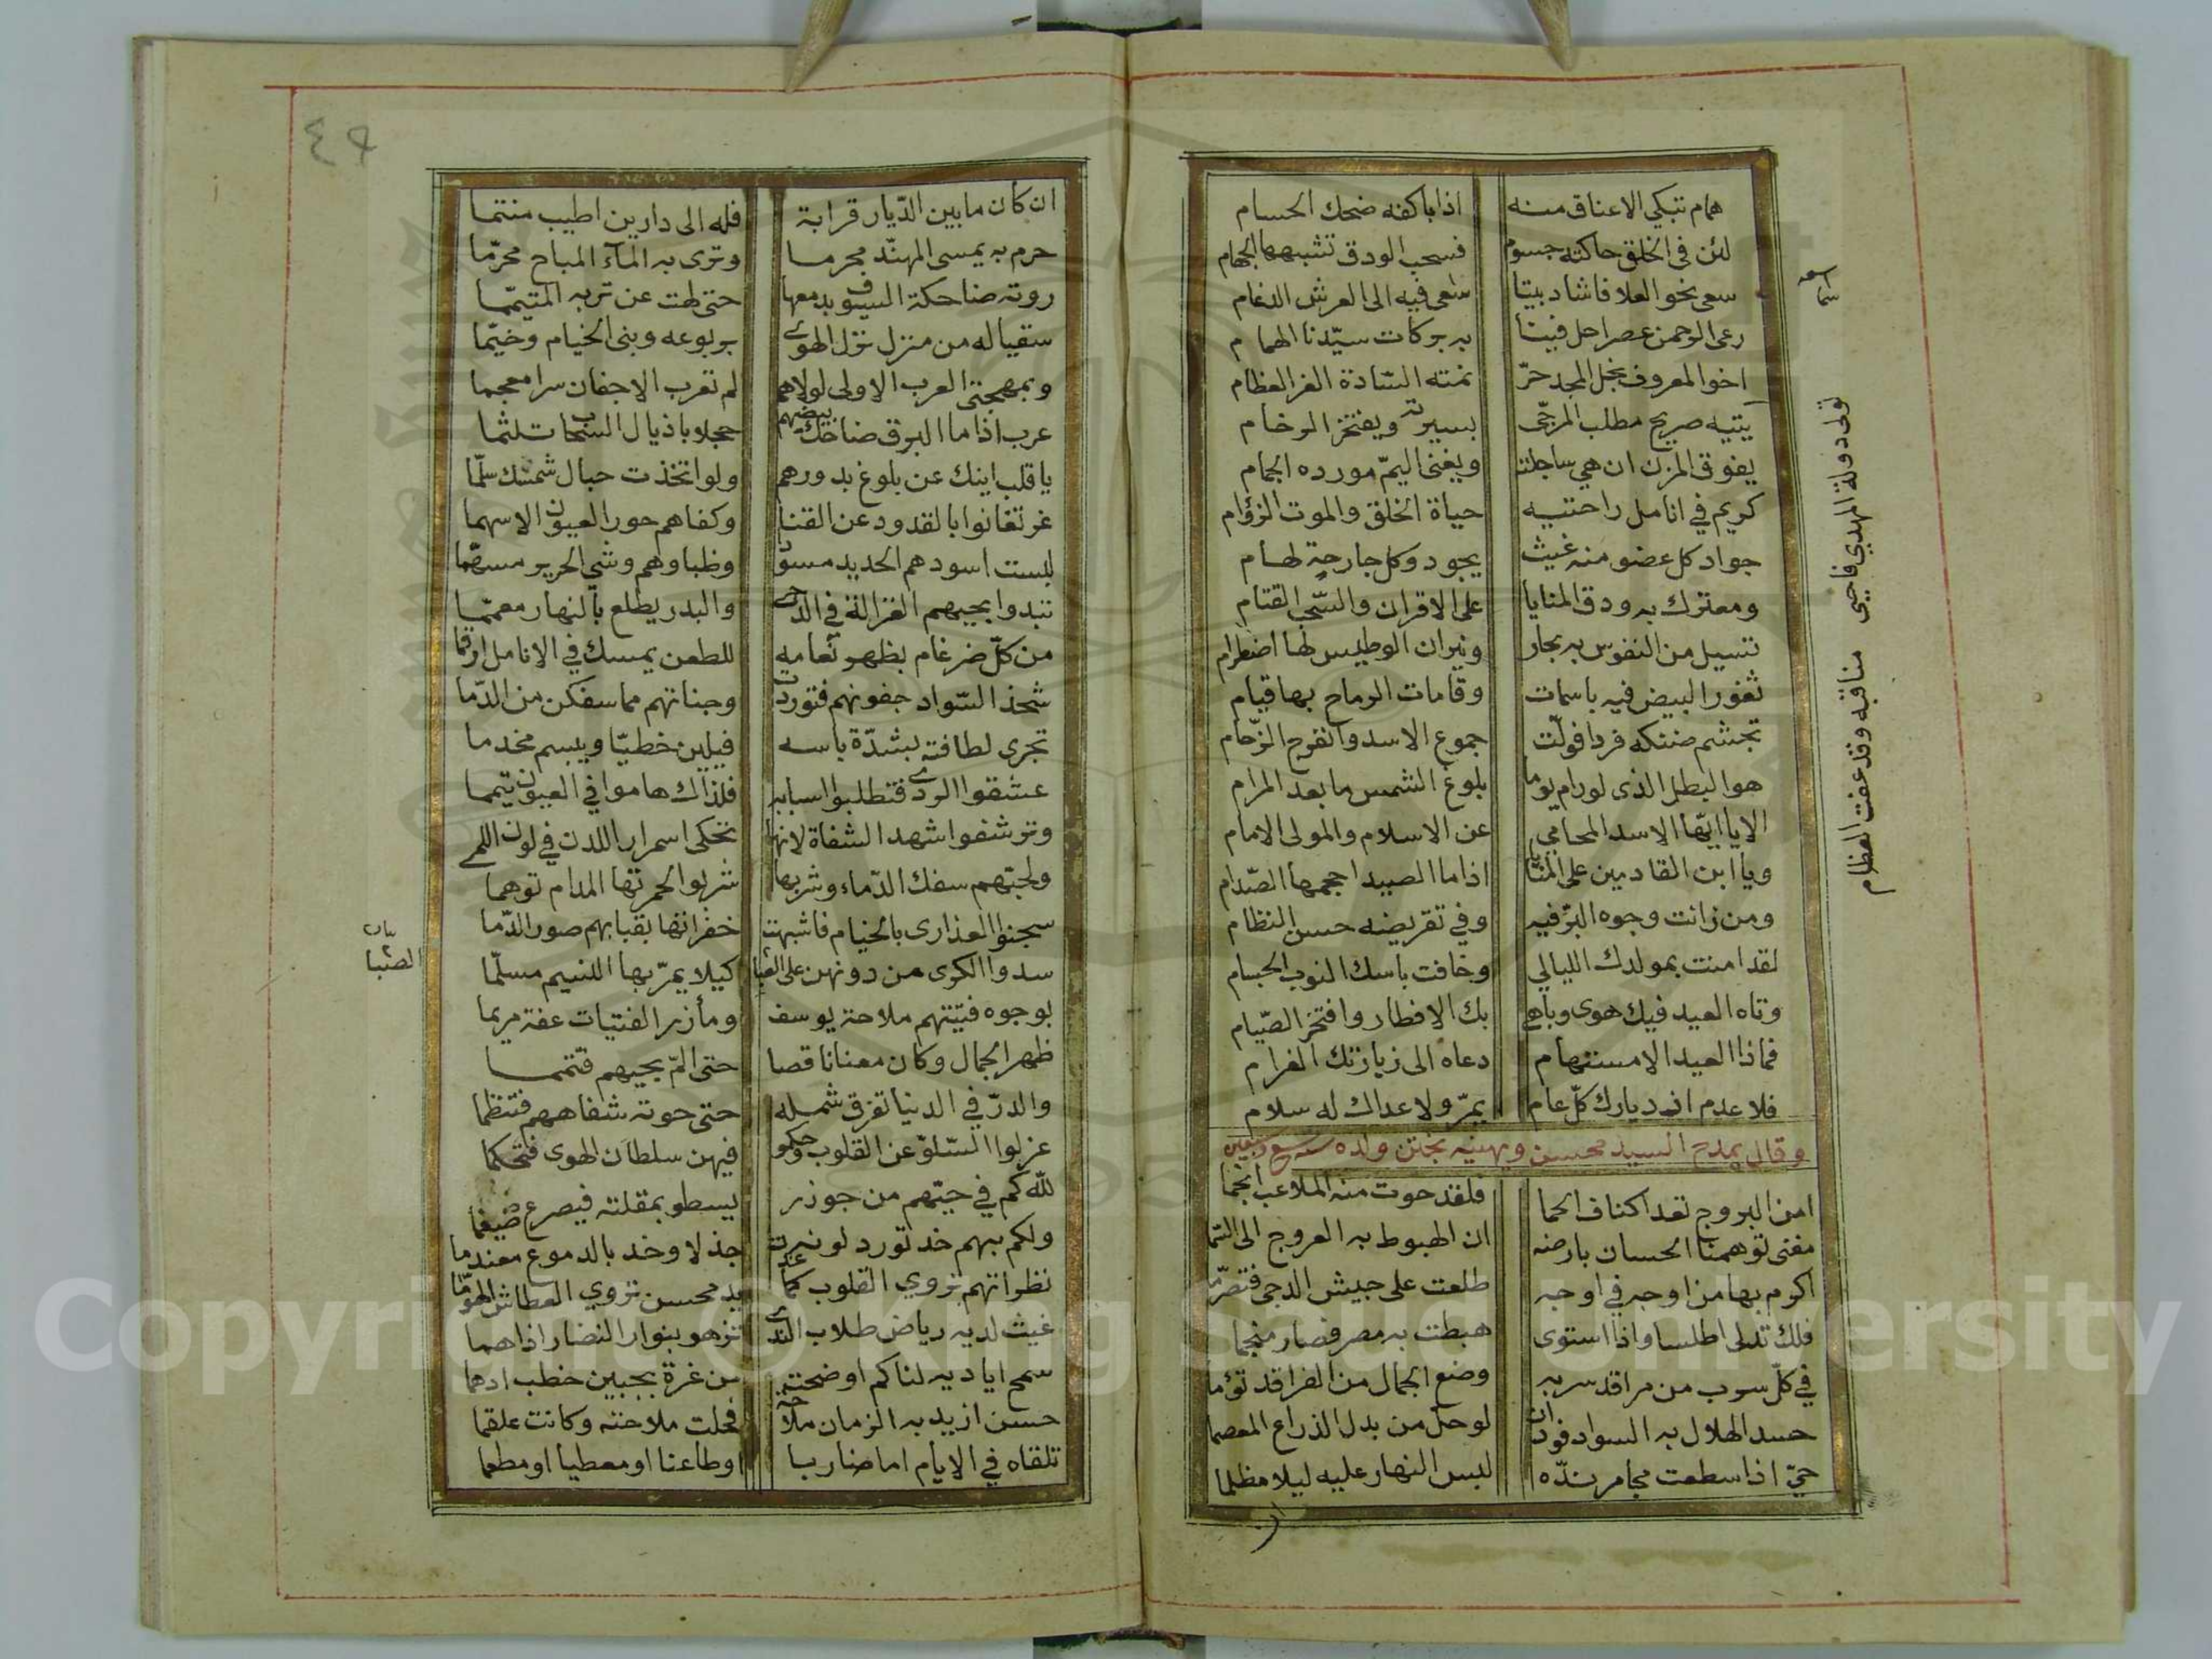 همام تبكي الاعناق منه اذا باكفه ضحك الحسام
لئن في الخلق حاكته جسوم فسحب الودق تشبهها الجهام
سعى نحو العلا فاشاد بيتا سعى فيه الى العرش الدغام
رعى الرحمن عصرا حل فينا به بركات سيّدنا الهمام
اخو المعروف نجل المجد حرّ نمته السّادة الغر العظام
يتيه صريح مطلب المرجّى بسيرته ويفتخر الرخام
يفوق المزن ان هي ساجلته ويغنى اليمّ مورده الجمام
كريم في انامل راحتيه حياة الخلق والموت الزؤام
جواد كل عضو منه غيث يجود وكل جارحة لهام
ومعترك به ودق المنايا على الاقران والسّحب القتام
تسيل من النفوس به بحار ونيران الوطيس لها اضطرام
ثغور البيض فيه باسمات وقامات الرماح بها قيام
تجشم ضنكه فردا فولّت جموع الاسد وانفرج الزّحام
هو البطل الذى لو رام يوما بلوغ الشمس ما بعد المرام
الا يا ايّها الاسد المحامي عن الاسلام والمولى الامام
ويا ابن القادمين على المنايا اذا ما الصيد احجمها الصّدام
ومن زانت وجوه البرّ فيه وفي تقريضه حسن النظام
لقد امنت بمولدك الليالي وخافت باسك النوب الجسام
وتاه العيد فيك هوى وباهى بك الافطار وافتخر الصّيام
فماذا العيد الا مستهام دعاه الى زيارتك الغرام
فلا عدم ازديارك كلّ عام يمرّ ولا عداك له سلام
وقال يمدح السيد محسن ويهنيه بختن ولده
امن البروج تعد اكناف الحما فلقد حوت منه الملاعب انجما
مغنى توهمنا الحسان بارضه ان الهبوط به العروج الى السّما
اكرم بها من اوجه في اوجه طلعت على جيش الدجى فتصرّما
فلك تدلى اطلسا واذا استوى هبطت به مصر فصار منجما
في كلّ سرب من مراقد سربه وضع الجمال من الفراقد تؤما
حسد الهلال به السوار فودّ ان لو حلّ من بدل الذراع المعصما
حيّ اذا سطعت مجامر ندّه لبس النهار عليه ليلا مظلما
ان
تولى دولة المهدي فاحيى مناقبه وقد عفت العظام
٤٩
ان كان ما بين الدّيار قرابة فله الى دارين اطيب منتما
حرم به يمسى المهنّد محرما وترى به المآء المباح محرّما
روته ضاحكة السيوف بدمعها حتى نهت عن تربه المتيمّما
سقيا له من منزل نزل الهوى بربوعه وبنى الخيام وخيّما
وبمهجتى العرب الاولى لولاهم لم تعرب الاجفان سرا معجما
عرب اذا ما البرق ضاحك بيضهم خجلا باذيال السّحاب تلثما
يا قلب اينك عن بلوغ بدورهم ولو اتخذت حبال شمسك سلّما
غر تغانوا بالقدود عن القنا وكفاهم حور العيون الاسهما
لبست اسودهم الحديد مسرّدا وظباوهم وشى الحرير مسهّما
تبدوا بجيبهم الغزالة في الدّجى والبدر يطلع بالنهار معمّما
من كلّ ضرغام بظهر نعامه للطعن يمسك في الانامل ارقما
شحذ السّواد جفونهم فتورّدت وجناتهم مما سفكن من الدّما
تجرى لطافته بشدّة باسه فيلين خطيّا ويبسم مخدما
عشقوا الردى فتطلبوا اسبابه فلذاك هاموا في العيون تيمما
وترشفوا شهد الشفاة لانها تحكى اسمرار اللدن في لون اللمى
ولحبّهم سفك الدّماء وشربها شربوا لحمرتها المدام توهما
سجنوا العذارى بالخيام فاشبهت خفرانها بقبابهم صور الدّما
سدوا الكرى من دونهن على الصّبا كيلا يمرّ بها النسيم مسلّما
الصّبا
بوجوه فتيتهم ملاحة يوسف ومأزر الفتيات عفة مريما
ظهر الجمال وكان معنا ناقصا حتى المّ بجيهم فتتمما
والدرّ في الدنيا تفرق شمله حتى حوته شفاههم فتنظما
عزلوا السّلوّ عن القلوب وحكموا فيهن سلطان الهوى فتحكما
للّه كم في حيّهم من جوذر يسطو بمقلته فيصرع ضيغما
ولكم بهم خد تورد لونه جذلا وخد بالدموع معندما
نظراتهم تروي القلوب كما غدت يد محسن تروي العطاش الهوّما
غيث لديه رياض طلاب الندى تزهو بنوار النضار اذا هما
سمح اياديه لنا كم اوضحت من غرة بجبين خطب ادهما
حسن ازيد به الزمان ملاحة فحلت ملاحته وكانت علقما
تلقاه في الايام اما ضاربا او طاعنا او معطيا او مطعما